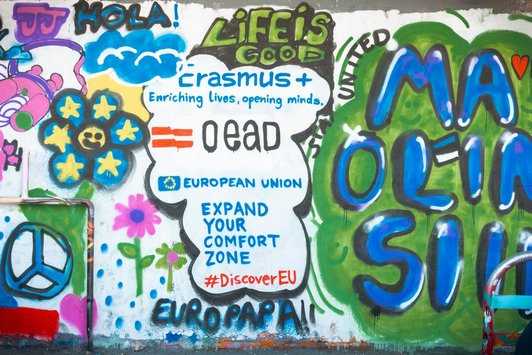 JJ
HOLA!
LiFE iS
GOOD
Erasmus+
Enriching lives, opening minds.
OeAD
EUROPEAN UNION
EXPAND
YOUR
COMFORT
ZONE
#DiscoverEU
EUROPAPA
UNITED
MA